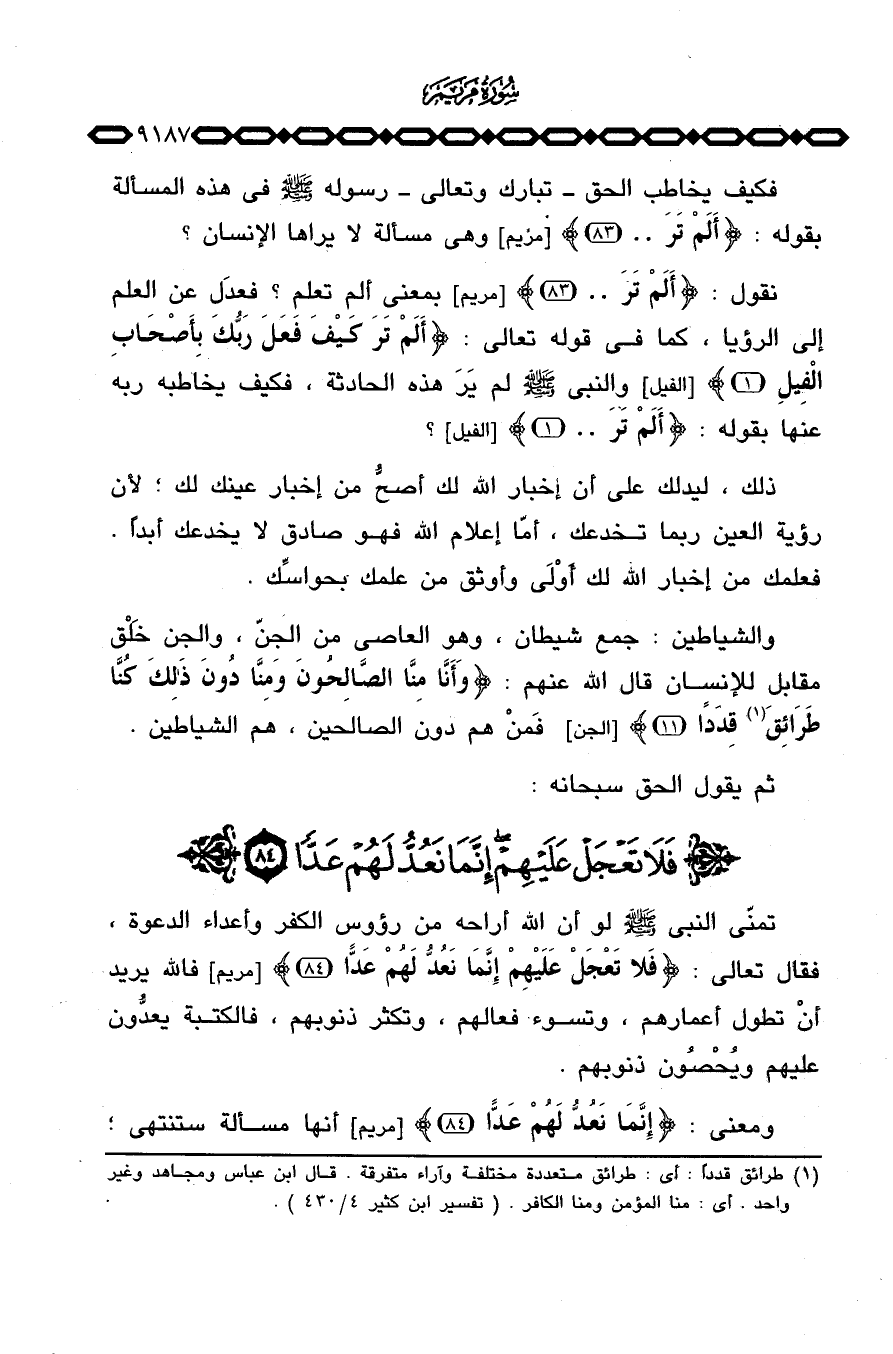 سُورَةُ مَرْيَمَ
٩١٨٧
فكيف يخاطب الحق – تبارك وتعالى – رسوله ﷺ فى هذه المسألة
بقوله : ﴿أَلَمْ تَرَ .. (٨٣)﴾ [مريم] وهى مسألة لا يراها الإنسان ؟
نقول : ﴿أَلَمْ تَرَ .. (٨٣)﴾ [مريم] بمعنى ألم تعلم ؟ فعدَل عن العلم
إلى الرؤيا ، كما فى قوله تعالى : ﴿أَلَمْ تَرَ كَيْفَ فَعَلَ رَبُّكَ بِأَصْحَابِ
الْفِيلِ (١)﴾ [الفيل] والنبى ﷺ لم يَرَ هذه الحادثة ، فكيف يخاطبه ربه
عنها بقوله : ﴿أَلَمْ تَرَ .. (١)﴾ [الفيل] ؟
ذلك ، ليدلك على أن إخبار الله لك أصحُّ من إخبار عينك لك ؛ لأن
رؤية العين ربما تخدعك ، أمّا إعلام الله فهو صادق لا يخدعك أبداً .
فعلمك من إخبار الله لك أَوْلَى وأوثق من علمك بحواسِّك .
والشياطين : جمع شيطان ، وهو العاصى من الجنّ ، والجن خَلْق
مقابل للإنسان قال الله عنهم : ﴿وَأَنَّا مِنَّا الصَّالِحُونَ وَمِنَّا دُونَ ذَٰلِكَ كُنَّا
طَرَائِقَ(١) قِدَدًا (١١)﴾ [الجن] فَمنْ هم دون الصالحين ، هم الشياطين .
ثم يقول الحق سبحانه :
﴿فَلَا تَعْجَلْ عَلَيْهِمْ ۖ إِنَّمَا نَعُدُّ لَهُمْ عَدًّا (٨٤)﴾
تمنّى النبى ﷺ لو أن الله أراحه من رؤوس الكفر وأعداء الدعوة ،
فقال تعالى : ﴿فَلا تَعْجَلْ عَلَيْهِمْ إِنَّمَا نَعُدُّ لَهُمْ عَدًّا (٨٤)﴾ [مريم] فالله يريد
أنْ تطول أعمارهم ، وتسوء فعالهم ، وتكثر ذنوبهم ، فالكتبة يعدُّون
عليهم ويُحْصُون ذنوبهم .
ومعنى : ﴿إِنَّمَا نَعُدُّ لَهُمْ عَدًّا (٨٤)﴾ [مريم] أنها مسألة ستنتهى ؛
(١) طرائق قدداً : أى : طرائق متعددة مختلفة وآراء متفرقة . قال ابن عباس ومجاهد وغير
واحد . أى : منا المؤمن ومنا الكافر . ( تفسير ابن كثير ٤/٤٣٠ ) .